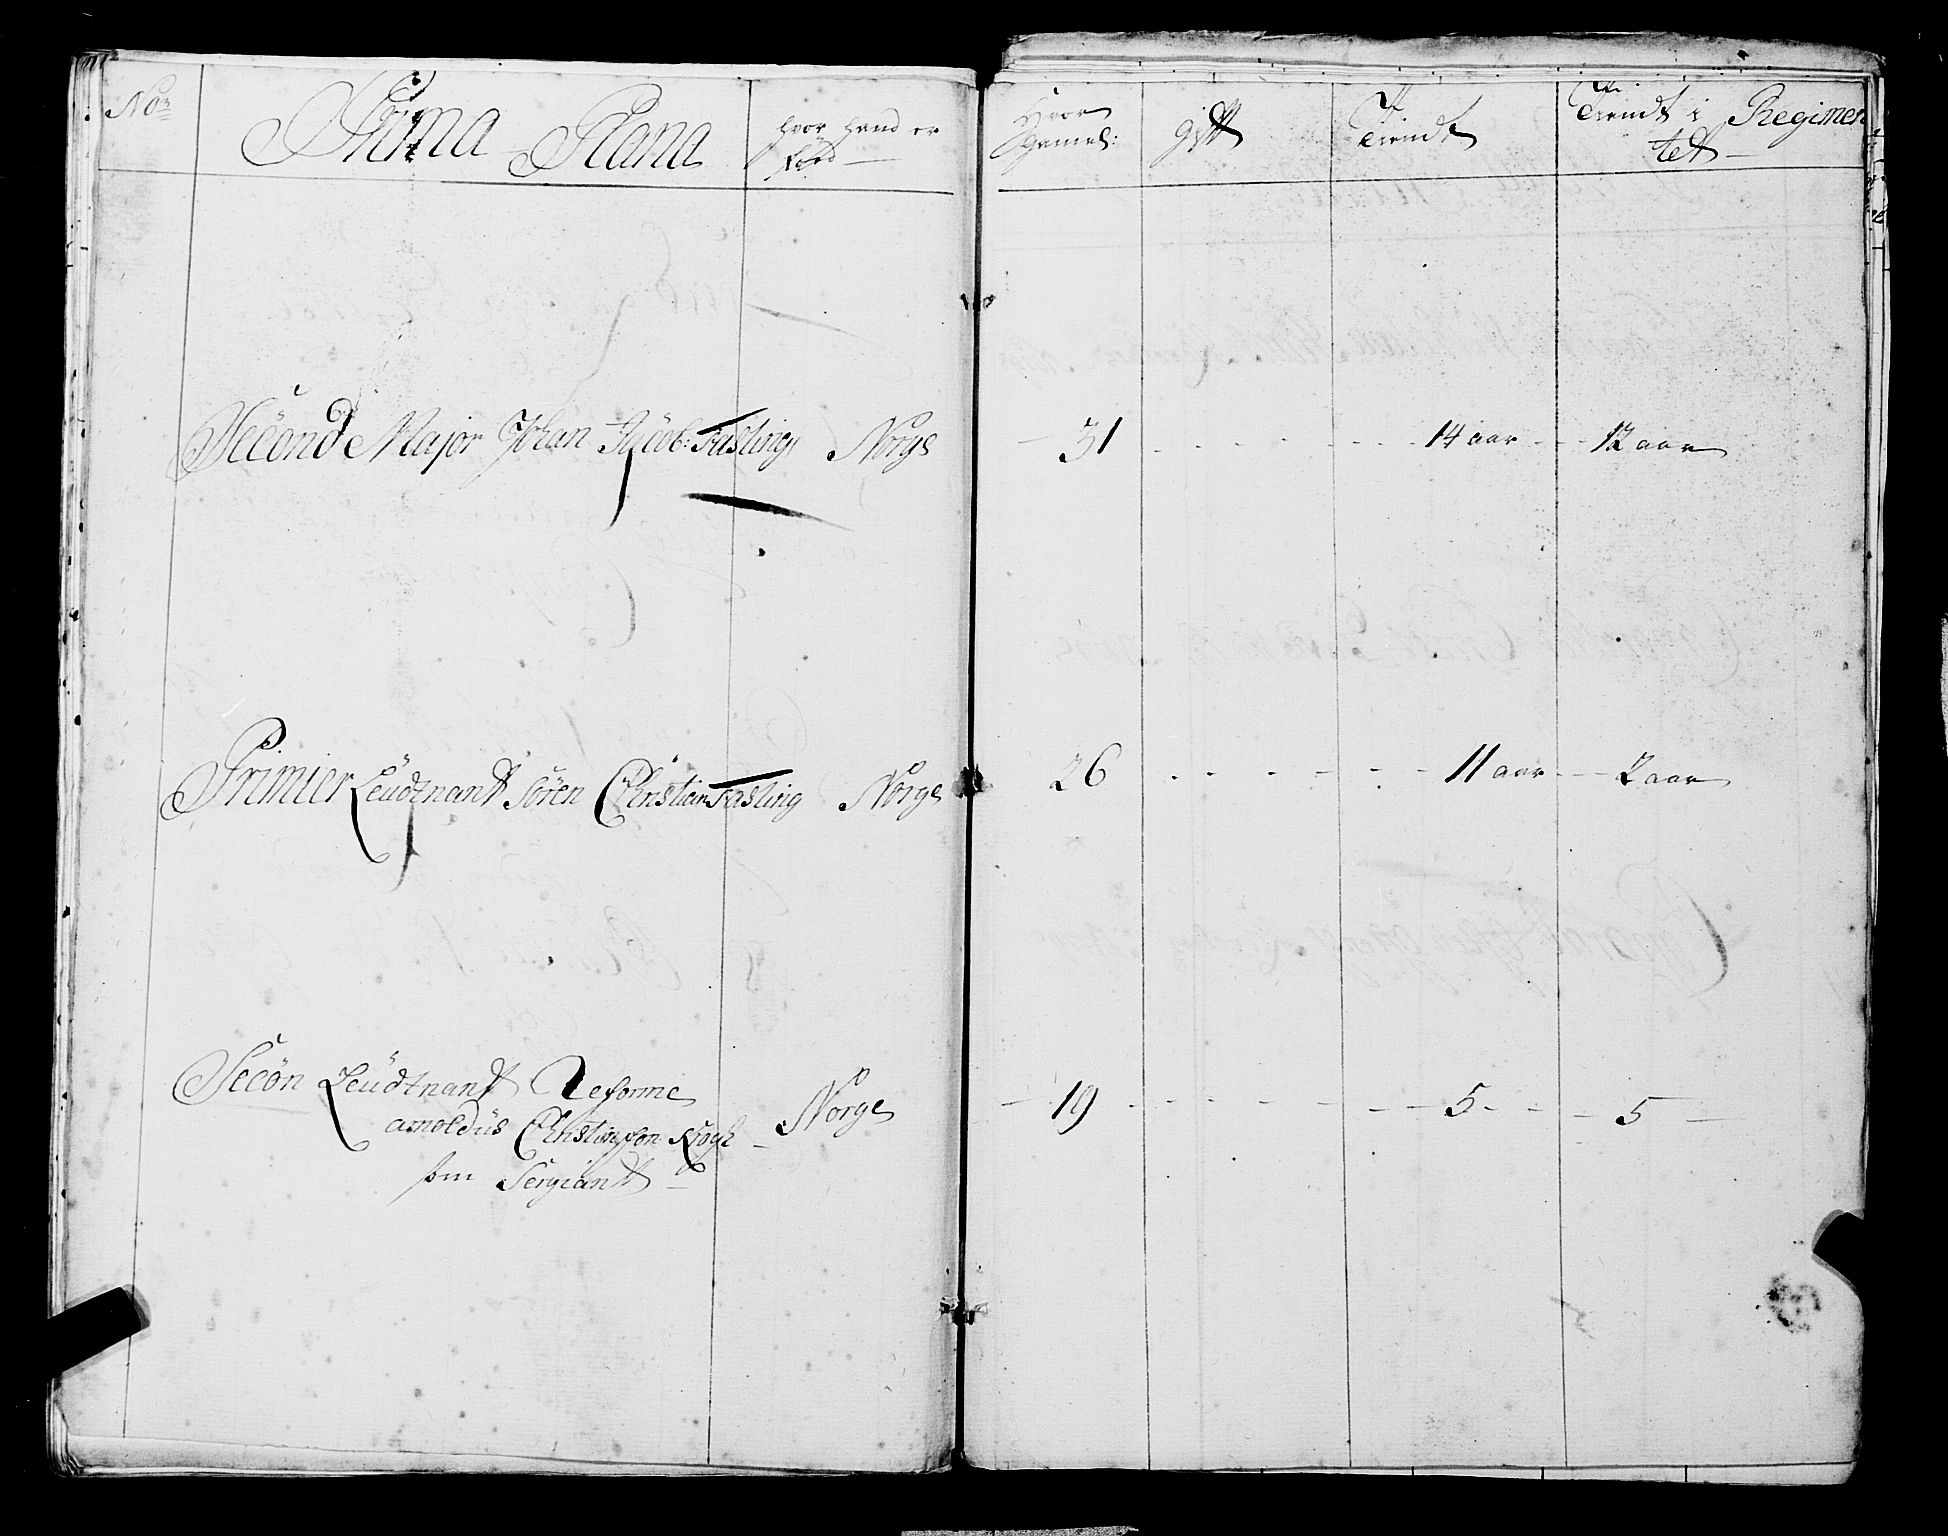 No
Prima Plana
hvor hand er
fød
Hvor
Gamel:
gift
Tiendt
Tiendt i Regimen
tet
Second Major Johan Jacob: Fasting Norge 31 14 aar 12 aar
Primier Leudtnant Sören Christian Fasting Norge 26 11 aar 2 aar
Secön Leudtnant Reforme
arnoldüs Christianson Krogh Norge 19 5 5
som Sergiant